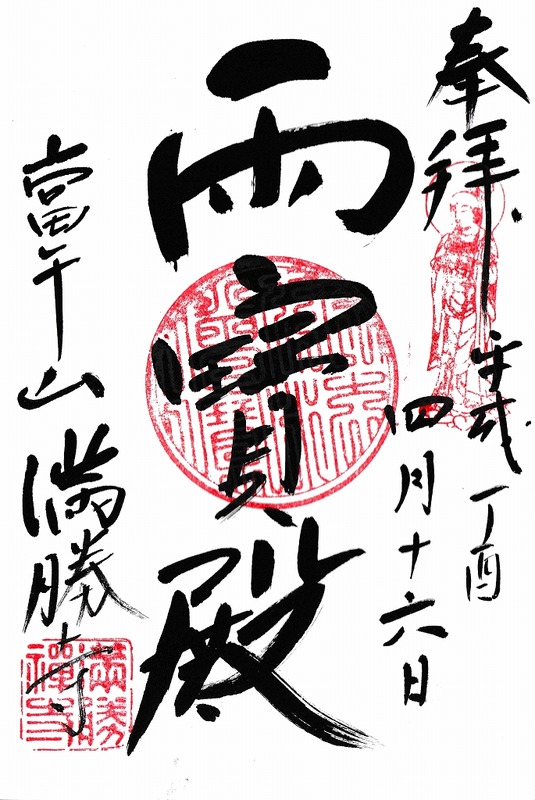 奉拝
平成丁酉
四月十六日
雨寳殿
富午山満勝寺
満勝
禅寺